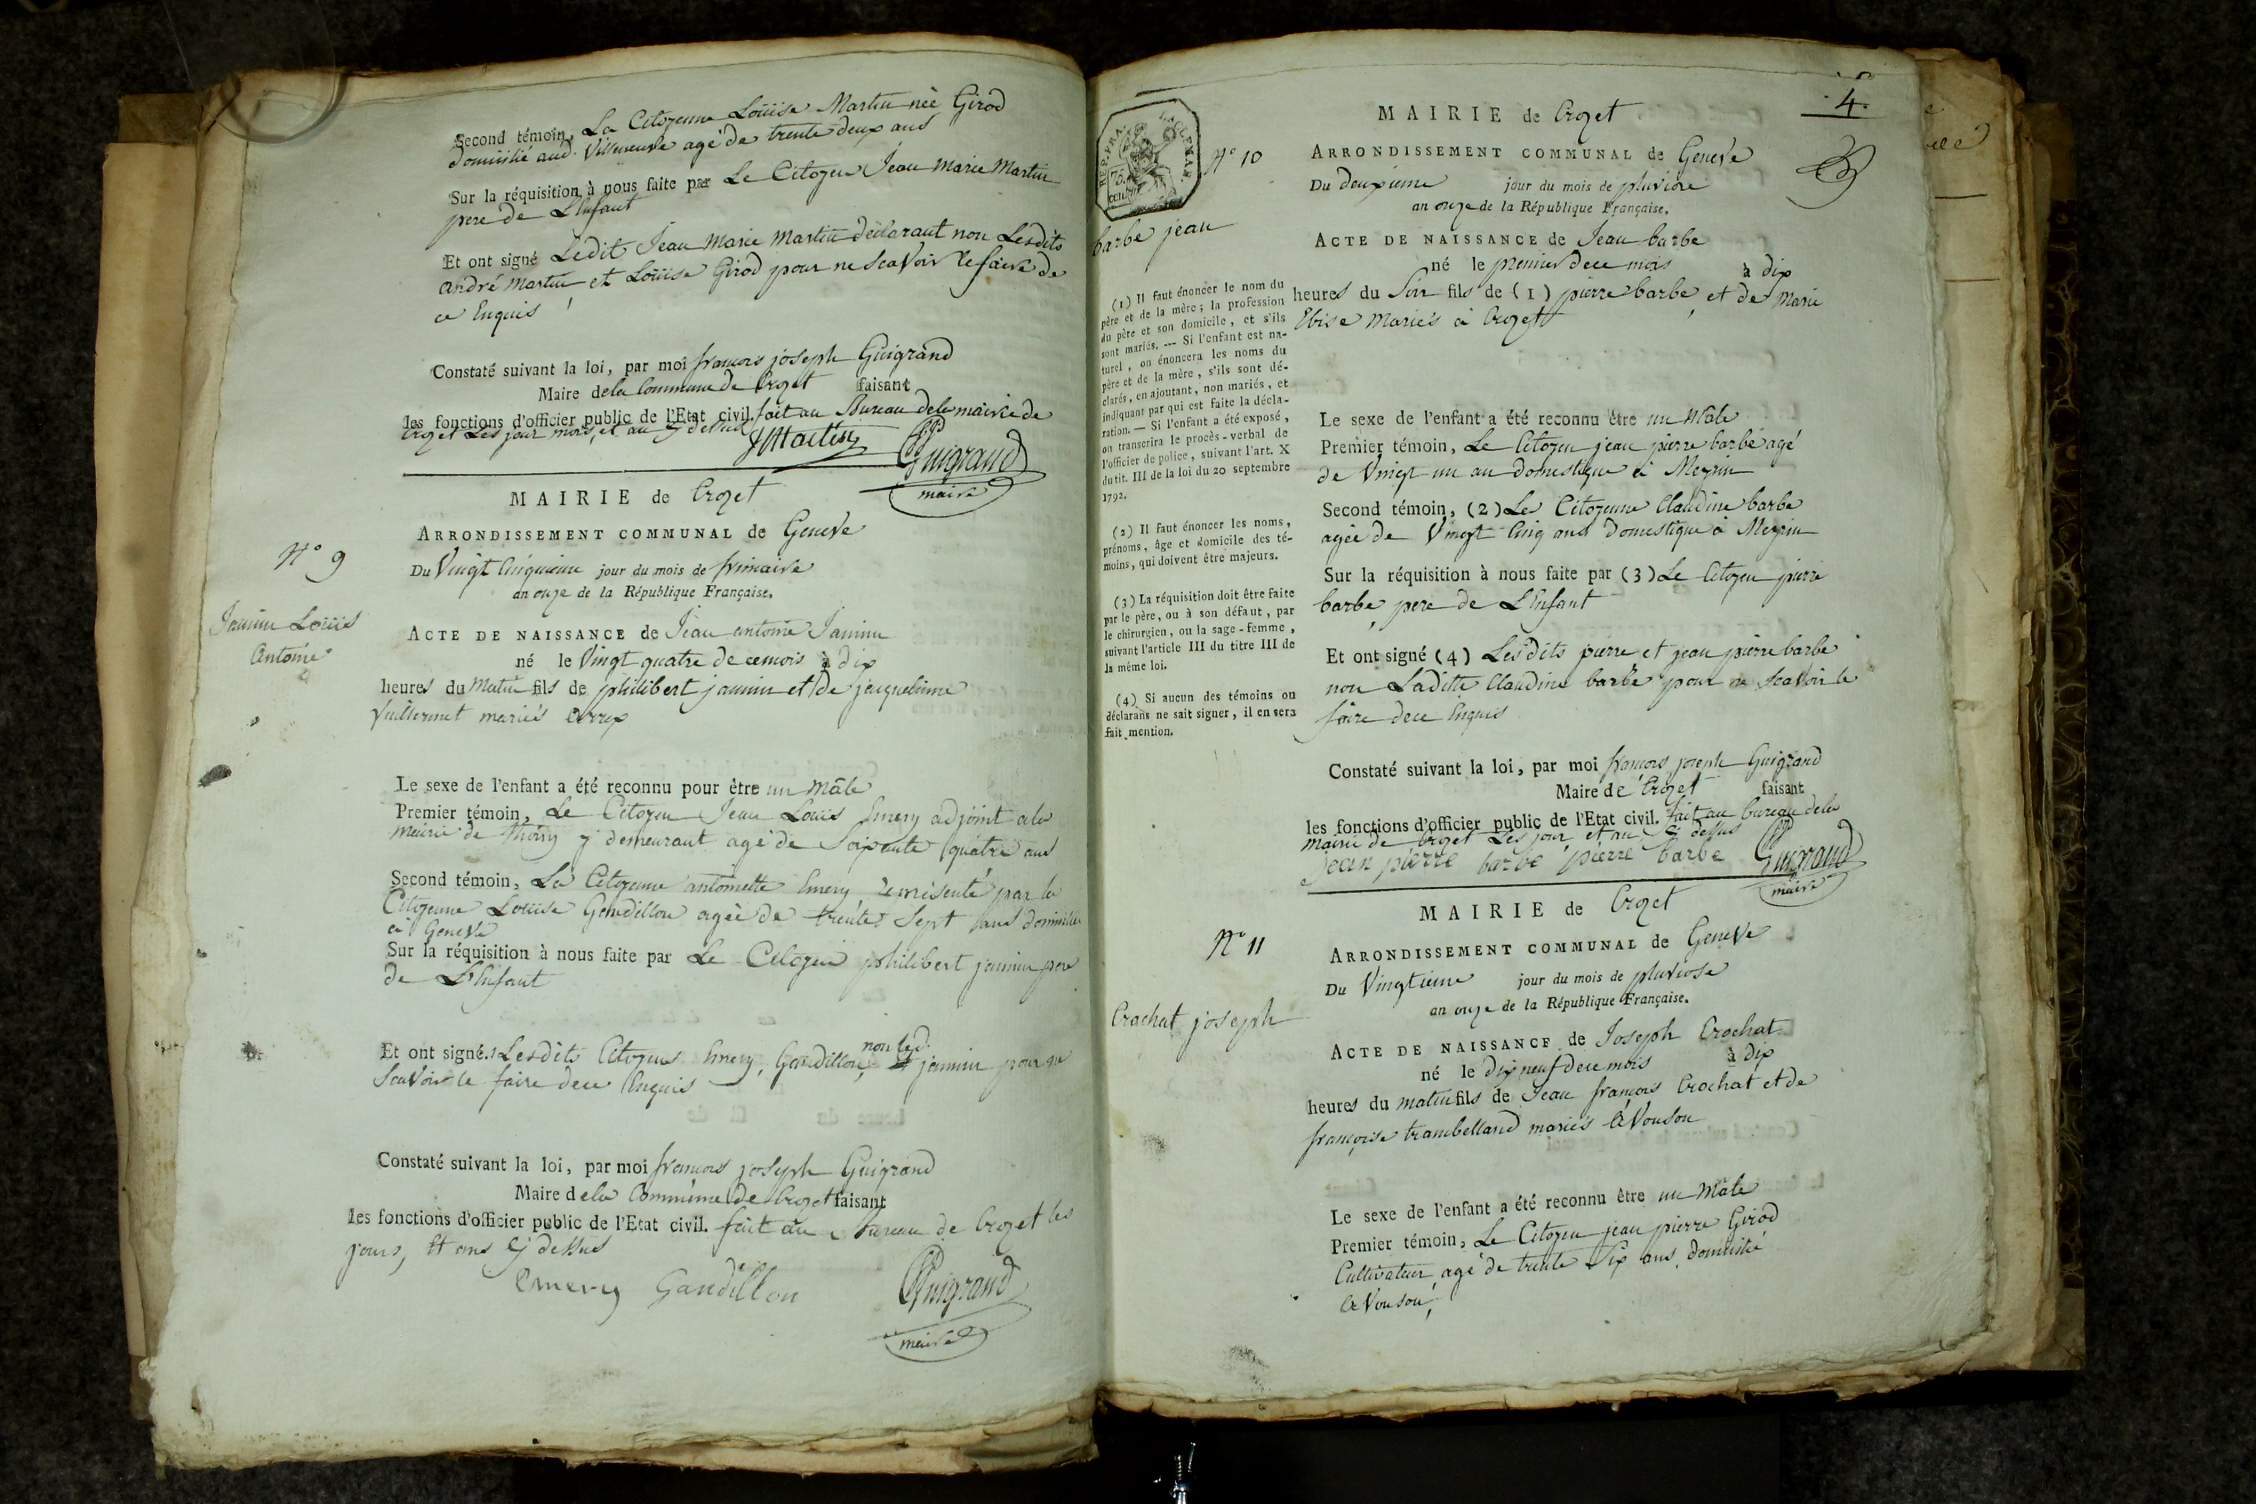 Second témoin, La Citoyenne Loüise Martin neè Girod
domicilié aud. Villeneuve agé de trente deux ans
Sur la réquisition à nous faite par Le Citoyen Jean Marie Martin
pere de L'Enfant
Et ont signé Ledit Jean Marie Martin déclarant non Lesdits
andré Martin et Loüise Girod pour ne Scavoir le faire de
ce Enquis
Constaté suivant la loi, par moi francois joseph Guigrand
Maire dela Commune de Crozet faisant
les fonctions d'officier public de l'Etat civil. fait au Bureau dela mairie de
Crozet Les jour mois, et an cy dessus
JMMartin Guigrand
maire
MAIRIE de Crozet
ARRONDISSEMENT COMMUNAL de Geneve
N° 9
Du Vingt Cinquieme jour du mois de frimaire
an onze de la République Française.
Jannin Loüis
Antoine
ACTE DE NAISSANCE de Jean antoine Jannin
né le Vingt quatre de ce mois à dix
heures du Matin fils de philibert jannin et de jacquelinne
Vuillermet mariés
Le sexe de l'enfant a été reconnu pour être un mâle
Premier témoin, Le Citoyen Jean Loüis Emery adjoint a la
mairie de thoiry y demeurant agé de Soixente quatre ans
Second témoin, La Citoyenne antoinette Emery representé par la
Citoyenne Loüise Gandillon agée de trente Sept ans domiciliée
a Geneve
Sur la réquisition à nous faite par Le Citoyen philibert jannin pere
de L'Enfant
non led.
Et ont signé. Lesdits Citoyens Emery, Gandillon, jannin pour ne
Scavoir le faire de ce Enquis
Constaté suivant la loi, par moi francois joseph Guigrand
Maire dela Commune de Crozet faisant
les fonctions d'officier public de l'Etat civil. fait au Bureau de Crozet les
jours, et ans cy dessus
Emery Gandillon Guigrand
maire
4.
REP. FRA.
75
cen.
MAIRIE de Crozet
N° 10
ARRONDISSEMENT COMMUNAL de Geneve
Du deuxieme jour du mois de pluviose
an onze de la République Française.
barbe jean
ACTE DE NAISSANCE de Jean barbe
né le premier de ce mois à dix
heures du Soir fils de (1) pierre barbe, et de Marie
Mariés à Crozet
(1) Il faut énoncer le nom du
père et de la mère ; la profession
du père et son domicile, et s'ils
sont mariés. — Si l'enfant est na-
turel, on énoncera les noms du
père et de la mère, s'ils sont dé-
clarés, en ajoutant, non mariés, et
indiquant par qui est faite la décla-
ration. — Si l'enfant a été exposé,
on transcrira le procès-verbal de
l'officier de police, suivant l'art. X
du tit. III de la loi du 20 septembre
1792.
(2) Il faut énoncer les noms,
prénoms, âge et domicile des té-
moins, qui doivent être majeurs.
(3) La réquisition doit être faite
par le père, ou à son défaut, par
le chirurgien, ou la sage-femme,
suivant l'article III du titre III de
la même loi.
(4) Si aucun des témoins ou
déclarans ne sait signer, il en sera
fait mention.
Le sexe de l'enfant a été reconnu être un Mâle
Premier témoin, Le Citoyen jean pierre barbe agé
de Vingt un an domestique à Meyrin
Second témoin, (2) La Citoyenne Claudine barbe
agée de Vingt Cinq ans domestique à Meyrin
Sur la réquisition à nous faite par (3) Le Citoyen pierre
barbe, pere de L'Enfant
Et ont signé (4) Lesdits pierre et jean pierre barbe
non Ladite Claudine barbe pour ne Scavoir le
faire de ce Enquis
Constaté suivant la loi, par moi francois joseph Guigrand
Maire de Crozet faisant
les fonctions d'officier public de l'Etat civil. fait au bureau dela
mairie de Crozet Les jour et an cy dessus
jean pierre barbe pierre barbe Guigrand
maire
MAIRIE de Crozet
N° 11
ARRONDISSEMENT COMMUNAL de Geneve
Du Vingtieme jour du mois de pluviose
an onze de la République Française.
Crochat joseph
ACTE DE NAISSANCE de Joseph Crochat
né le dix neuf de ce mois à dix
heures du matin fils de Jean françois Crochat et de
françoise trambelland mariés
Le sexe de l'enfant a été reconnu être un Mâle
Premier témoin, Le Citoyen jean pierre Girod
Cultivateur agé de trente Six ans, domicilié